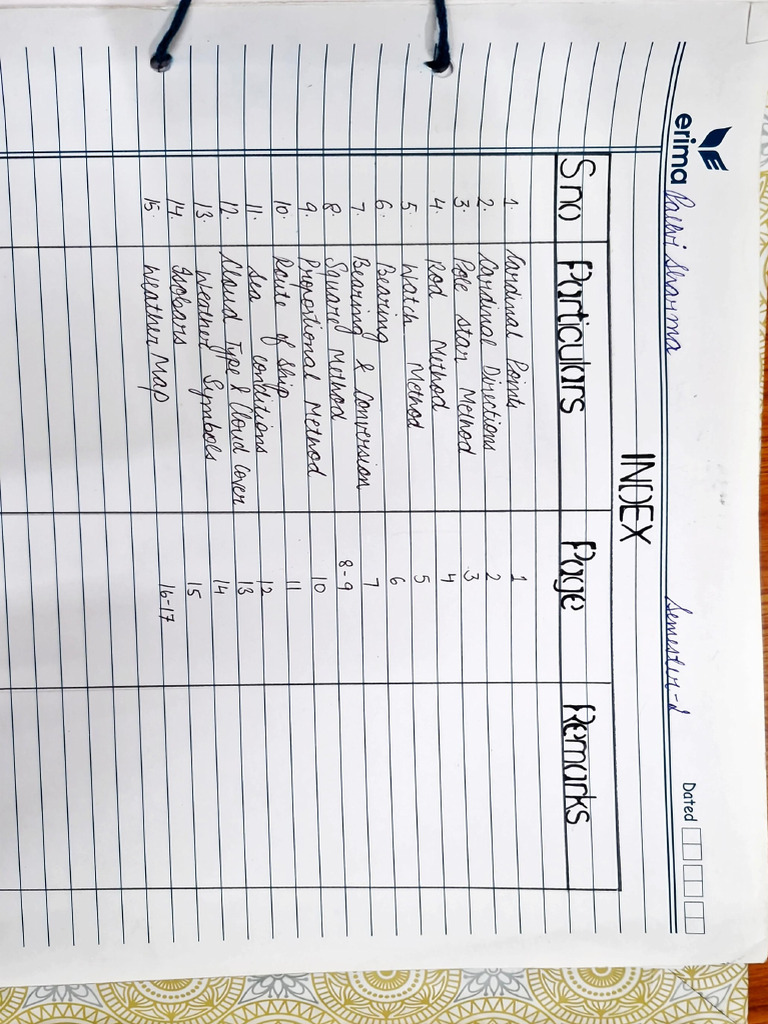 erima Sharma Semester-2 Dated
INDEX
S no Particulars Page Remarks
1. Cardinal Points 1
2. Cardinal Directions 2
3. Pole Star Method 3
4. Rod Method 4
5. Watch Method 5
6. Bearing 6
7. Bearing & Conversion 7
8. Square Method 8-9
9. Proportional Method 10
10. Route of Ship 11
11. Sea conditions 12
12. Cloud Type & Cloud cover 13
13. Weather Symbols 14
14. Isobars 15
15. Weather Map 16-17